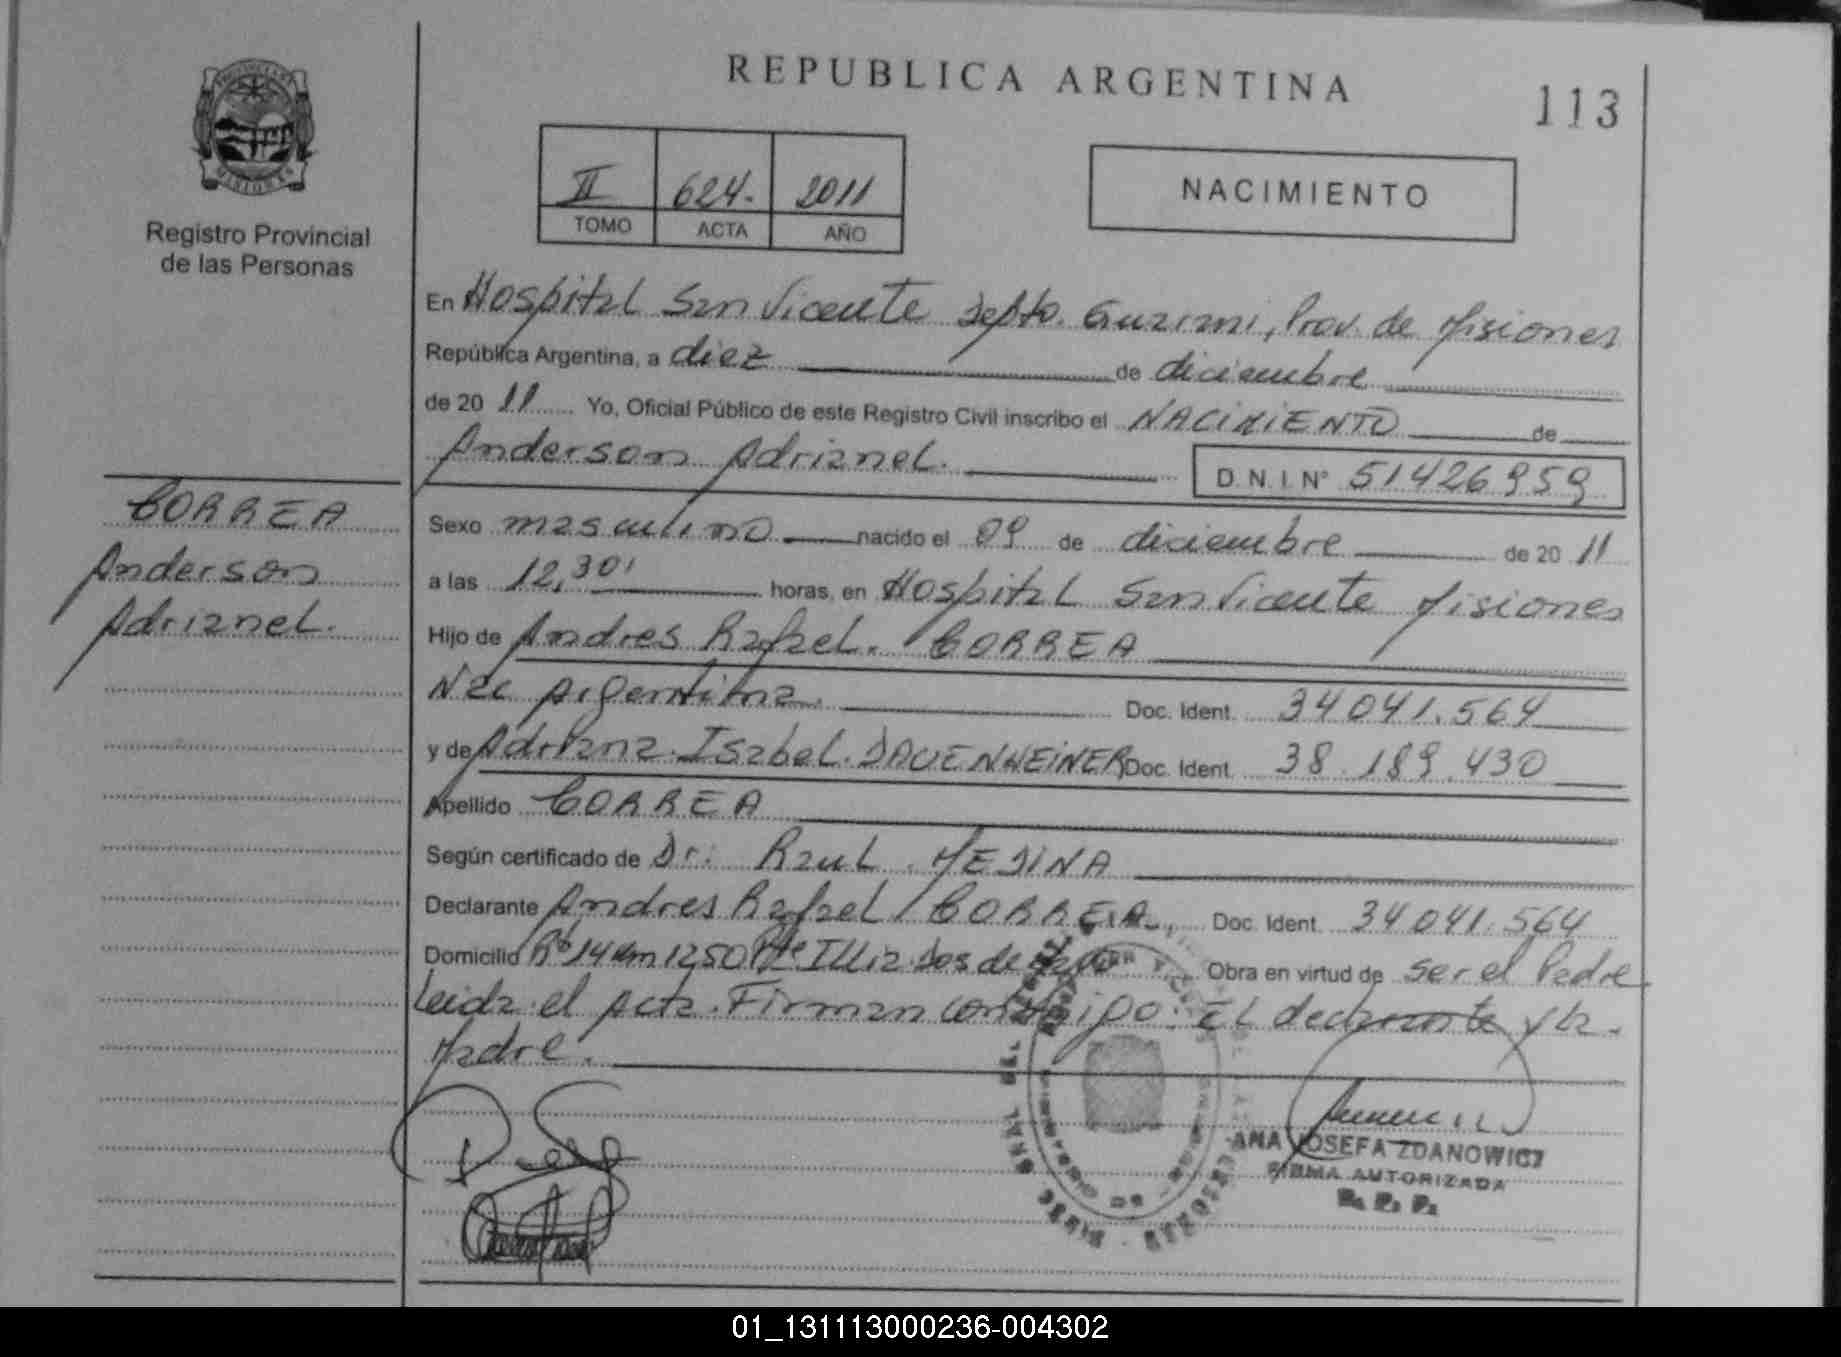 REPUBLICA ARGENTINA
113
PROVINCIA DE MISIONES
Registro Provincial
de las Personas
II 624. 2011
TOMO ACTA AÑO
NACIMIENTO
En Hospital San Vicente Depto. Guarani, Prov. de Misiones
República Argentina, a diez de diciembre
de 20 11 Yo, Oficial Público de este Registro Civil inscribo el NACIMIENTO de
Anderson Adrianel. D.N.I. N° 51426959
CORREA
Anderson
Adrianel.
Sexo masculino nacido el 09 de diciembre de 20 11
a las 12,30' horas, en Hospital San Vicente Misiones
Hijo de Andres Rafael. CORREA
Nac Argentina. Doc. Ident. 34041.564
y de Adriana Isabel. DAUENHEINER Doc. Ident. 38.189.430
Apellido CORREA
Según certificado de Dr. Raul MEDINA
Declarante Andres Rafael CORREA, Doc. Ident. 34041.564
Domicilio 14 km 1250 Dos de Obra en virtud de ser el Padre
Leida el Acta. Firman conmigo: El declarante y la
Madre.
ANA JOSEFA ZDANOWICZ
FIRMA AUTORIZADA
R. P. P.
01_131113000236-004302